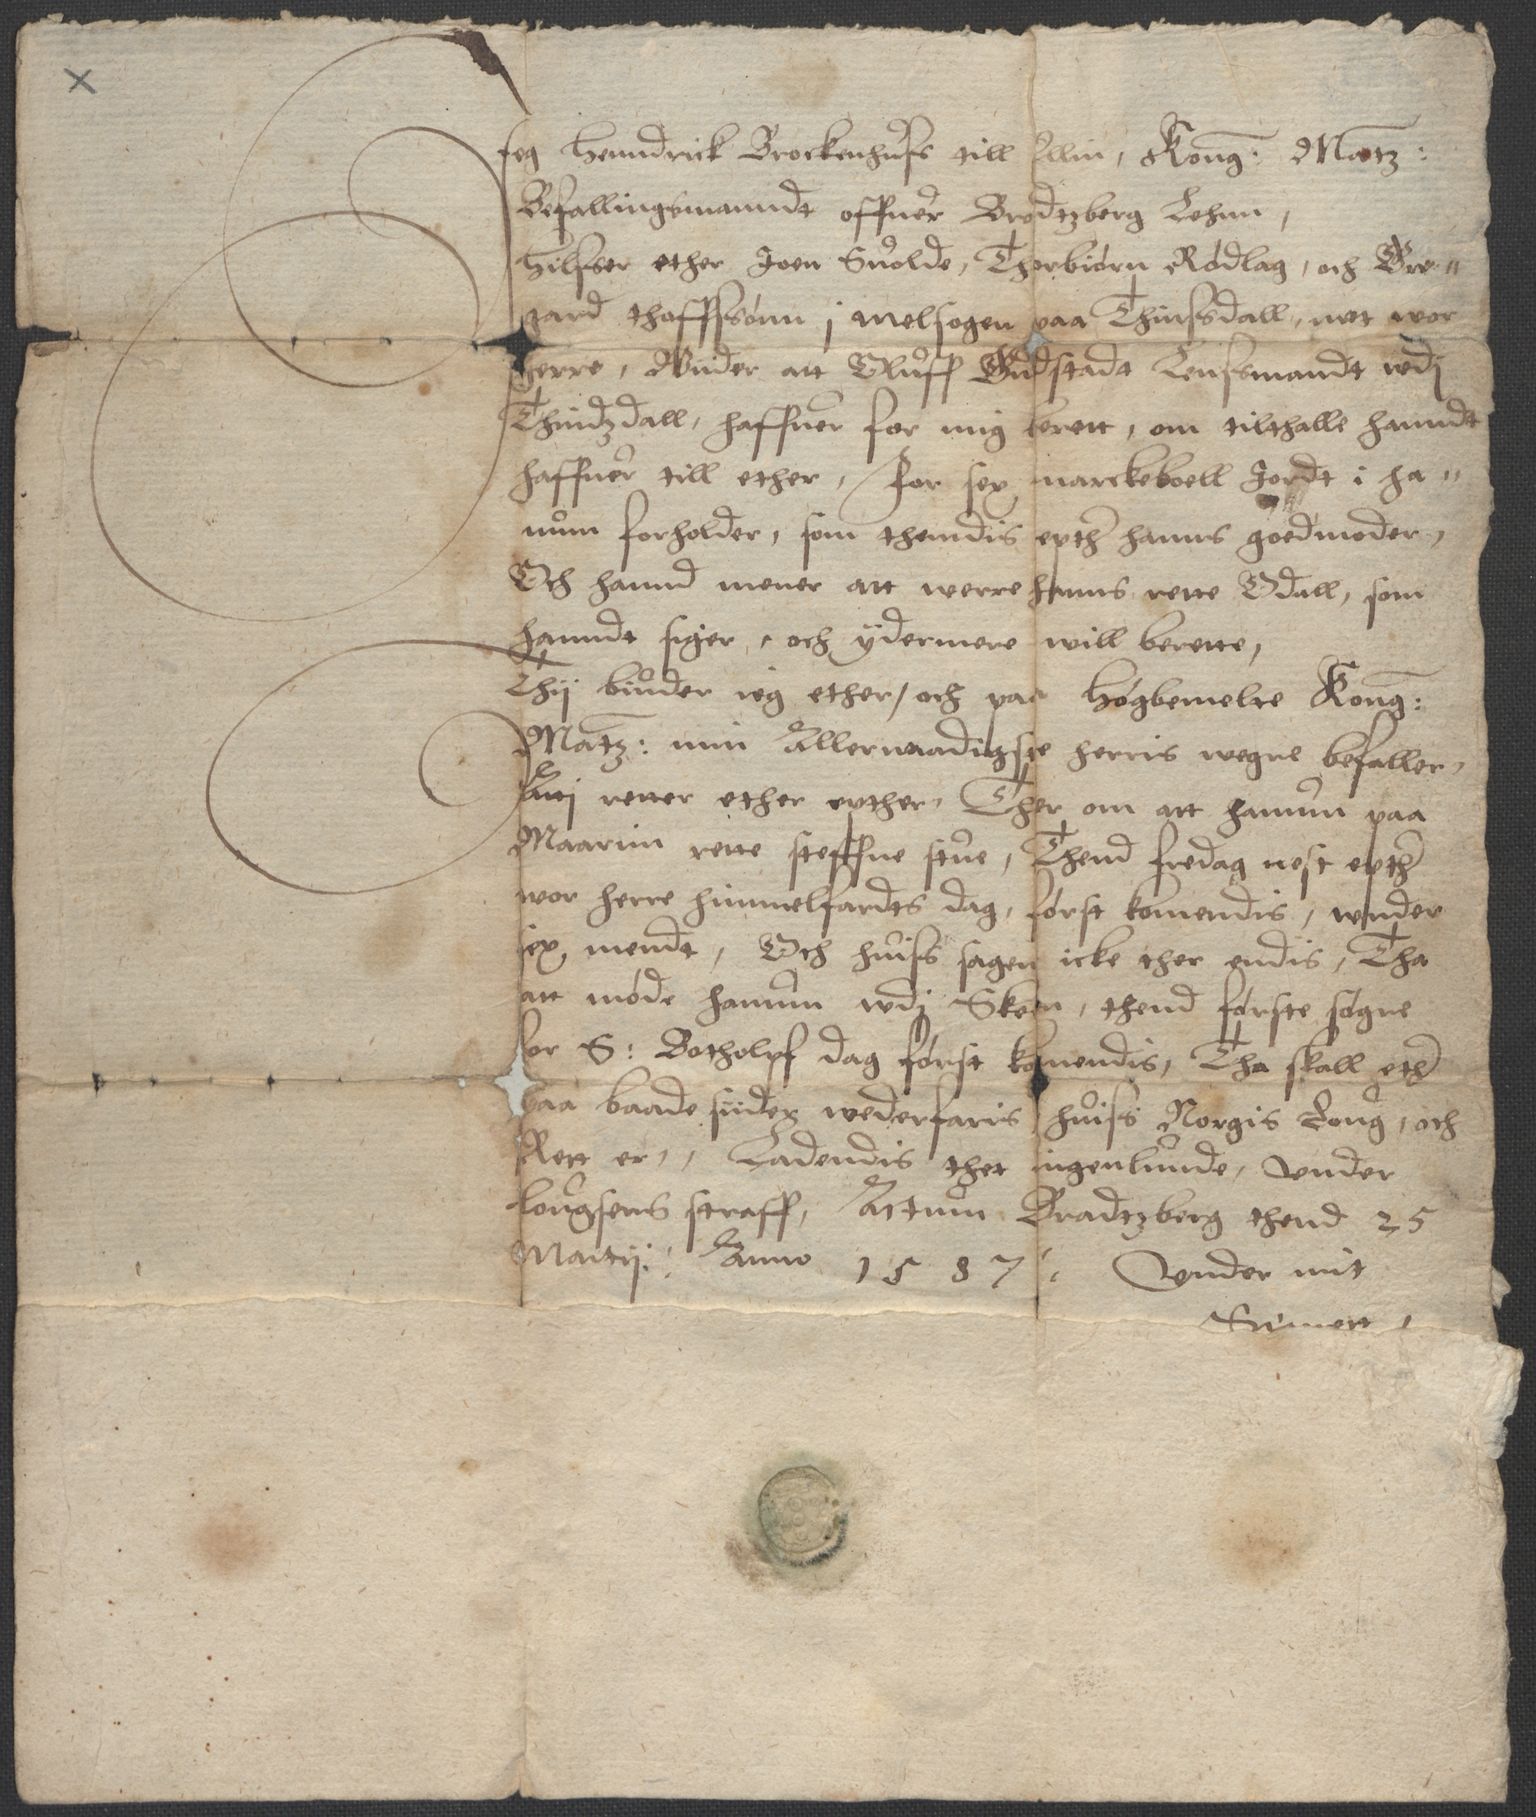 Jeg Henndrick Brockenhuss till Ellin, Kong: Matz:
Befallingsmanndt offuer Bradtzberg Lehnn,
Hilsser ether Joen Suolde, Thorbiørn Rødlag, och Bre-
gard thaffssønn j Melsogen paa Thinssdall, met wor
herre, Wiider att Oluff Gudstadt Lenssmandt wdj
Thindzdall, haffuer for mig berett, om tilthalle hanndt
haffuer till ether, for sex marckeboell Jordt i ha-
num forholder, som thendis epther hanns goedmoder,
Och hannd mener att werre hanns rette Odall, som
hanndt siger, och ydermere will berette,
Thij biuder ieg ether, och paa Høgbemelte Kong:
Matz: min Allernaadigste herris wegne befaller,
Att j retter ether epther, Ther om att hanum paa
Maarim rette steffne stue, Thend fredag nest epther
wor herre himmelfardts dag, først komendis, wnder
sex mendt, Och huiss sagen icke ther endis, Tha
att møde hanum wdj Skeen, thend første søgne
for S: Botholpf dag først komendis, Tha skall ether
paa baade siider wederfaris huiss Norgis Loug, och
Rett er, Ladendis thet ingenlunde, Vnder
lougsens straff, Actum Bradtzberg thend 25
Martij: Anno 1587: Vnder mit
Signett,